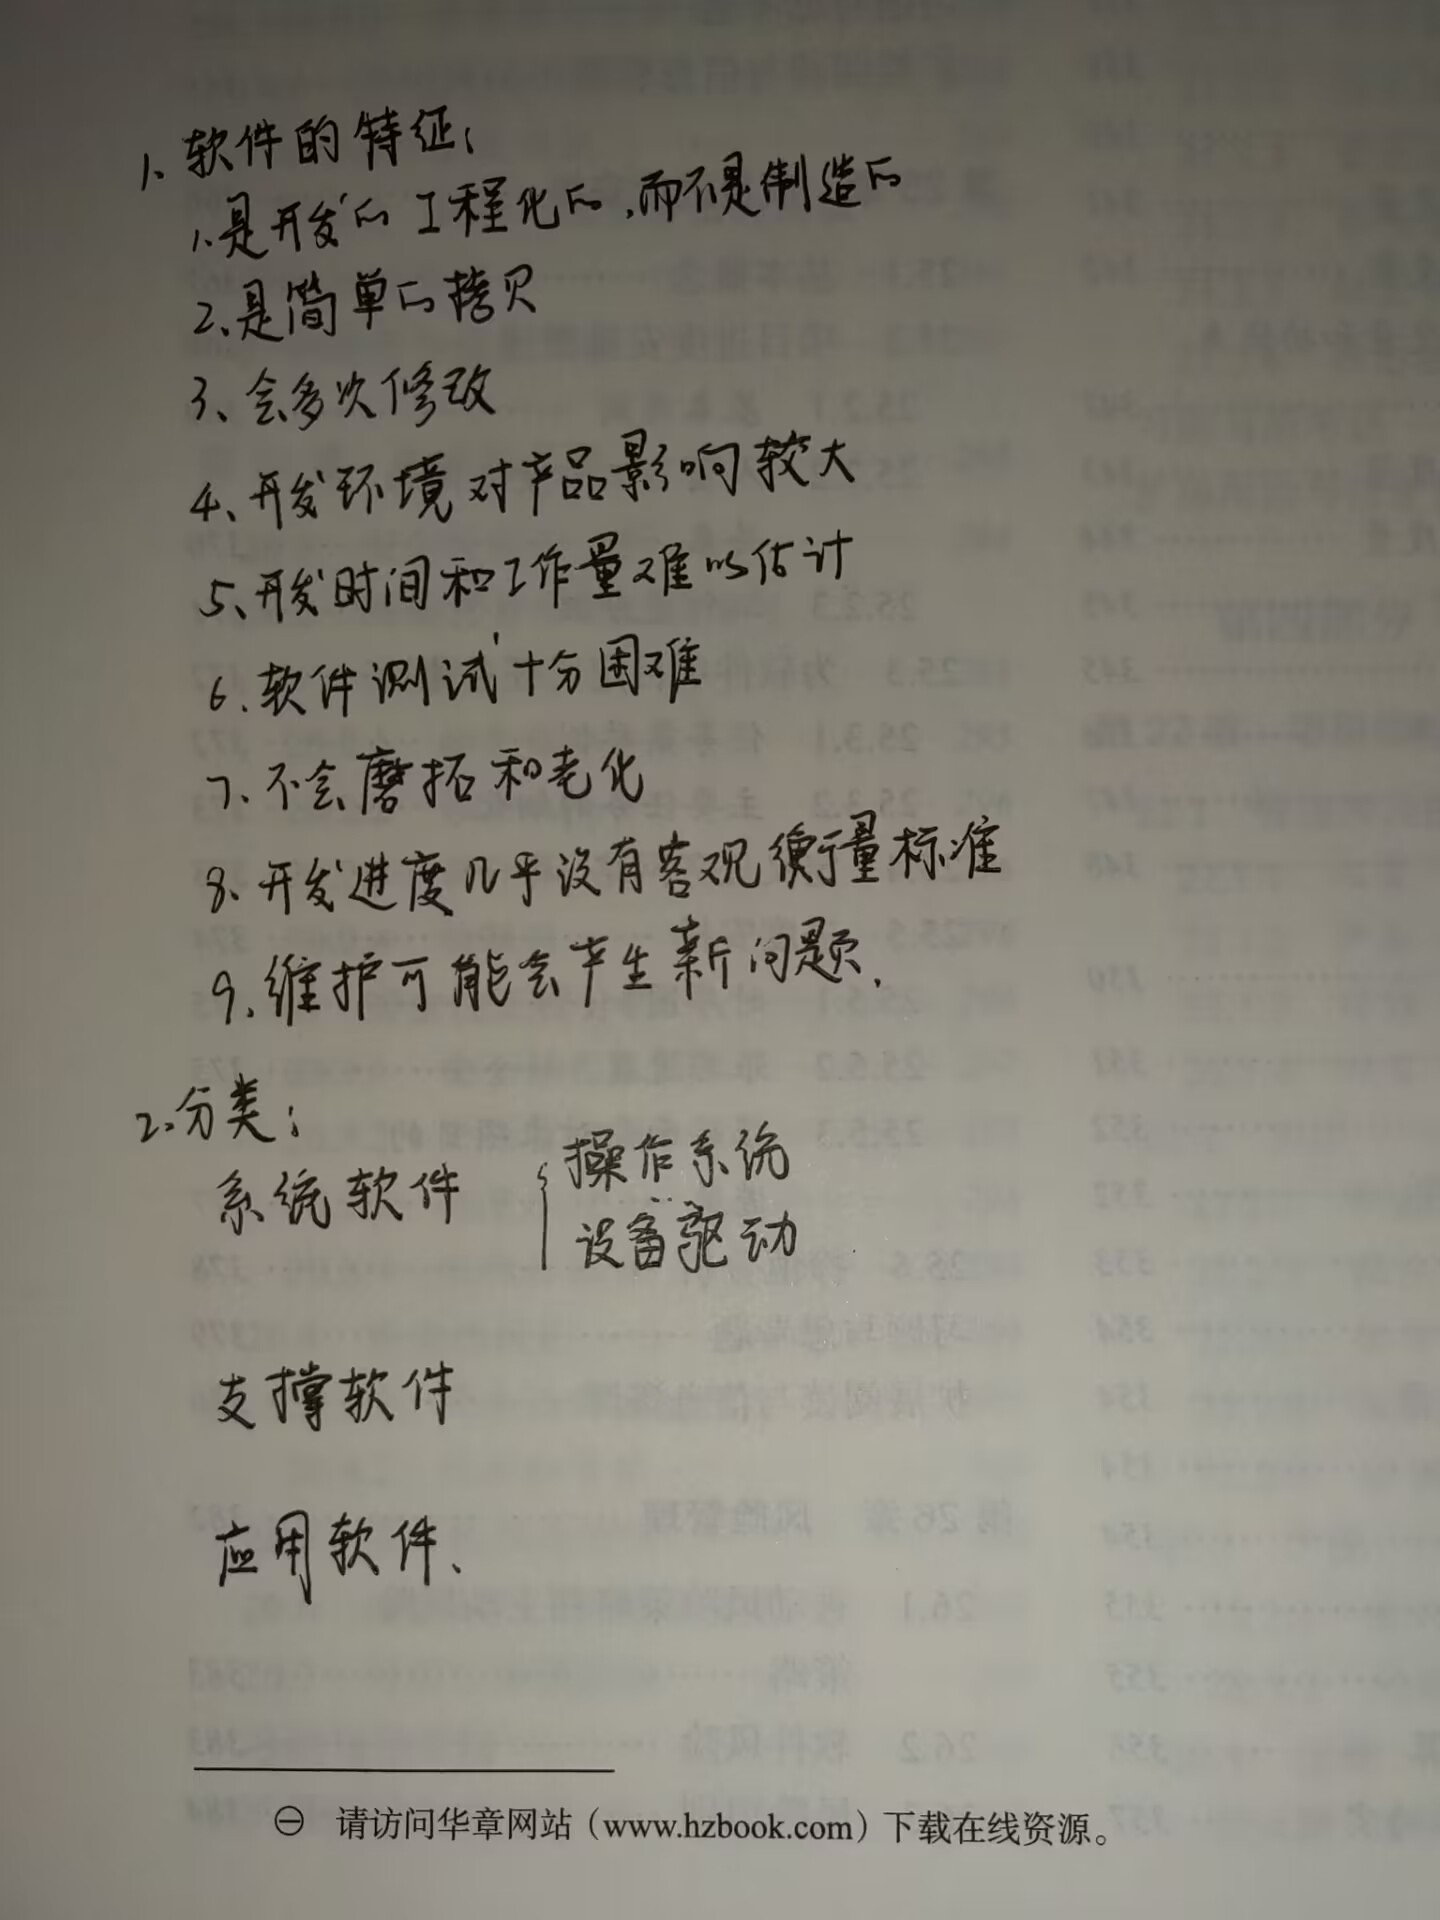 1、软件的特征：
1、是开发的工程化的，而不是制造的
2、是简单的拷贝
3、会多次修改
4、开发环境对产品影响较大
5、开发时间和工作量难以估计
6、软件测试十分困难
7、不会磨拓和老化
8、开发进度几乎没有客观衡量标准
9、维护可能会产生新问题.
2、分类：
系统软件 { 操作系统
设备驱动
支撑软件
应用软件、
㊀ 请访问华章网站（www.hzbook.com）下载在线资源。